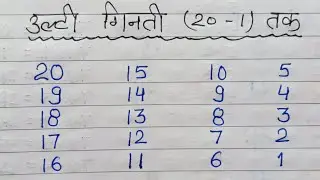 उल्टी गिनती (20-1) तक
20 15 10 5
19 14 9 4
18 13 8 3
17 12 7 2
16 11 6 1